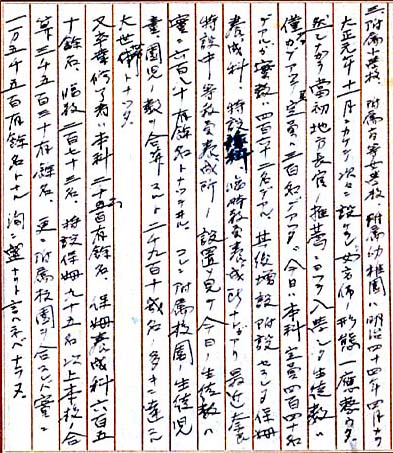 附属学校、附属高等女学校、附属幼稚園ハ明治四十四年四月カラ
大正元年十一月ニカケテ次々ニ設ケラレ女高師ノ形態ハ一應整ツタ。
然シナガラ當初地方長官ノ推薦ニヨツテ入学シタ生徒数ハ
僅カデアツテ定員ハ三百名デアツタガ今日ハ本科定員四百四十名
デアルガ実数ハ四百六十二名デアル。其後増設附設セラレタ保姆
養成科、特設 臨時教員養成所ナドアリ最近奈良
特設中等教員養成所ノ設置ヲ見テ今日ノ生徒数ハ
實ニ六百八十有餘名トナツテヰル。コレニ附属校園ノ生徒児
童、園児ノ数ヲ合算スルト二千九百十数名ノ多キニ達シ
大世帯トナツタ。
又卒業修了者ハ本科二千五百有餘名、保姆養成科六百五
十餘名、臨教二百五十三名、特設保姆九十五名以上本校ノ合
算三千五百三十有餘名、更ニ附属校園ヲ合スレバ實ニ
一万五千五百有餘名トナル 洵ニ盛ナリト言ハネバナラヌ